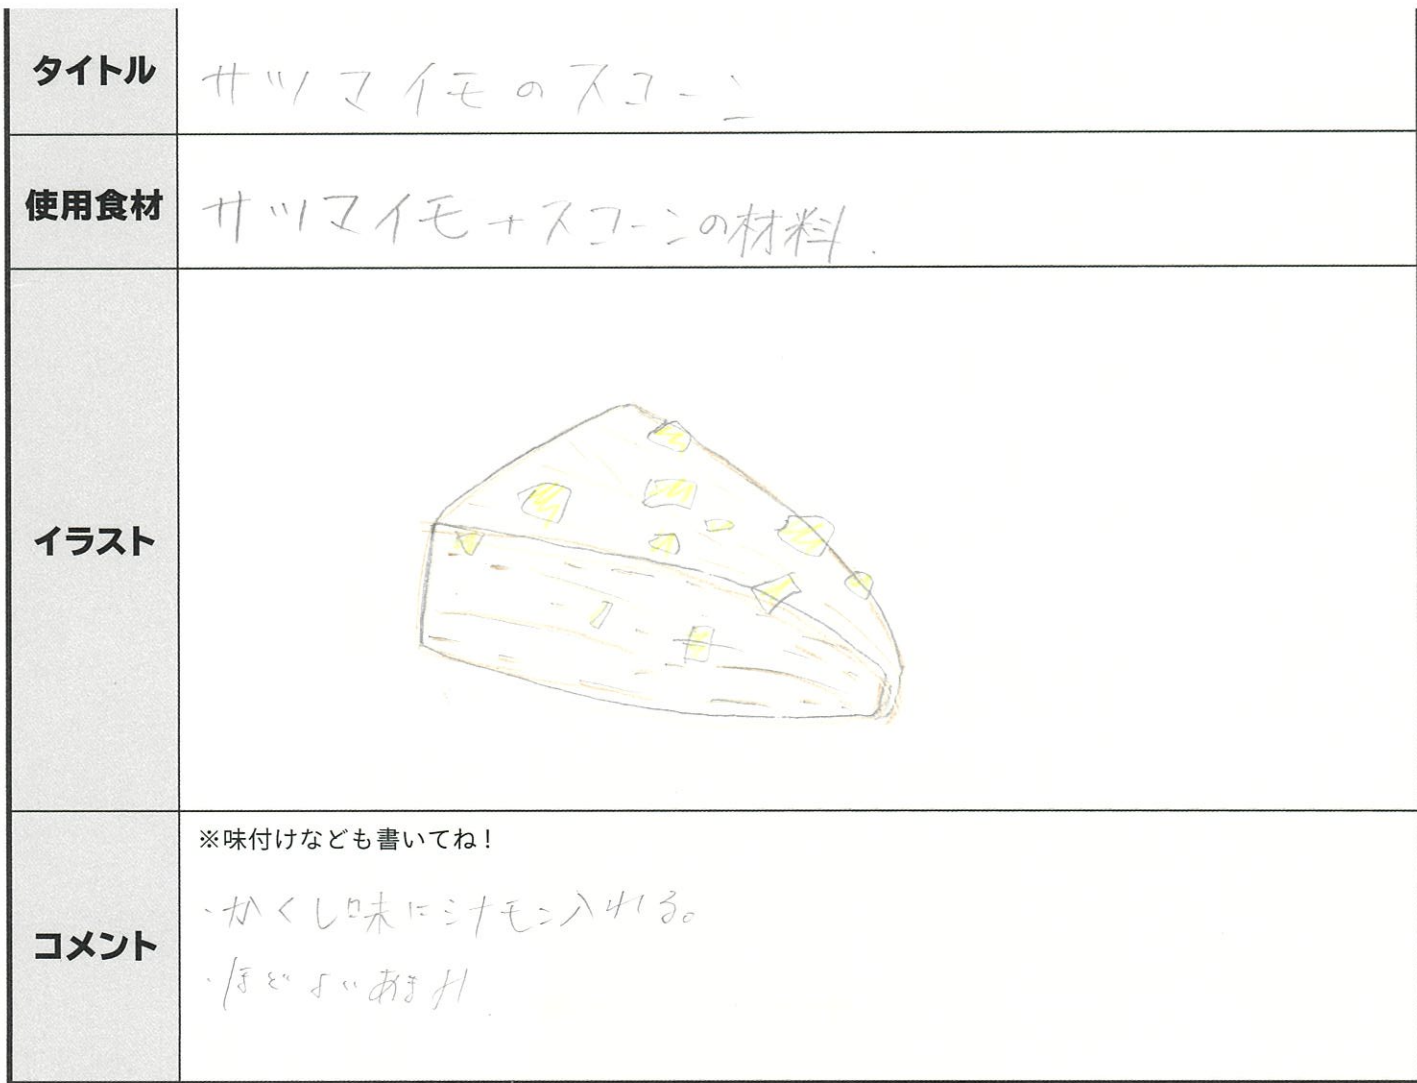 タイトル
サツマイモのスコーン
使用食材
サツマイモ+スコーンの材料.
イラスト
※味付けなども書いてね!
コメント
・かくし味にシナモン入れる。
・ほどよいあまみ